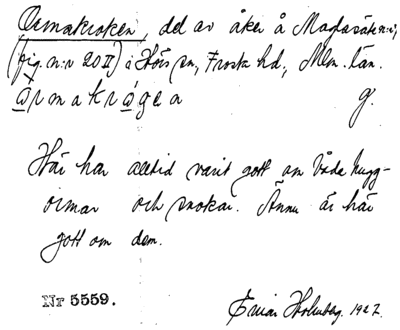 Ormakroken, del av åker å Maglasäte n:r 1
(fig. n:r 20 II) i Hörs sn, Frosta hd., Mlm. län.
årmakrågen g.
Här har alltid varit gott om både hugg-
ormar och snokar. Ännu är här
gott om dem.
Nr 5559.
Einar Holmberg. 1927.